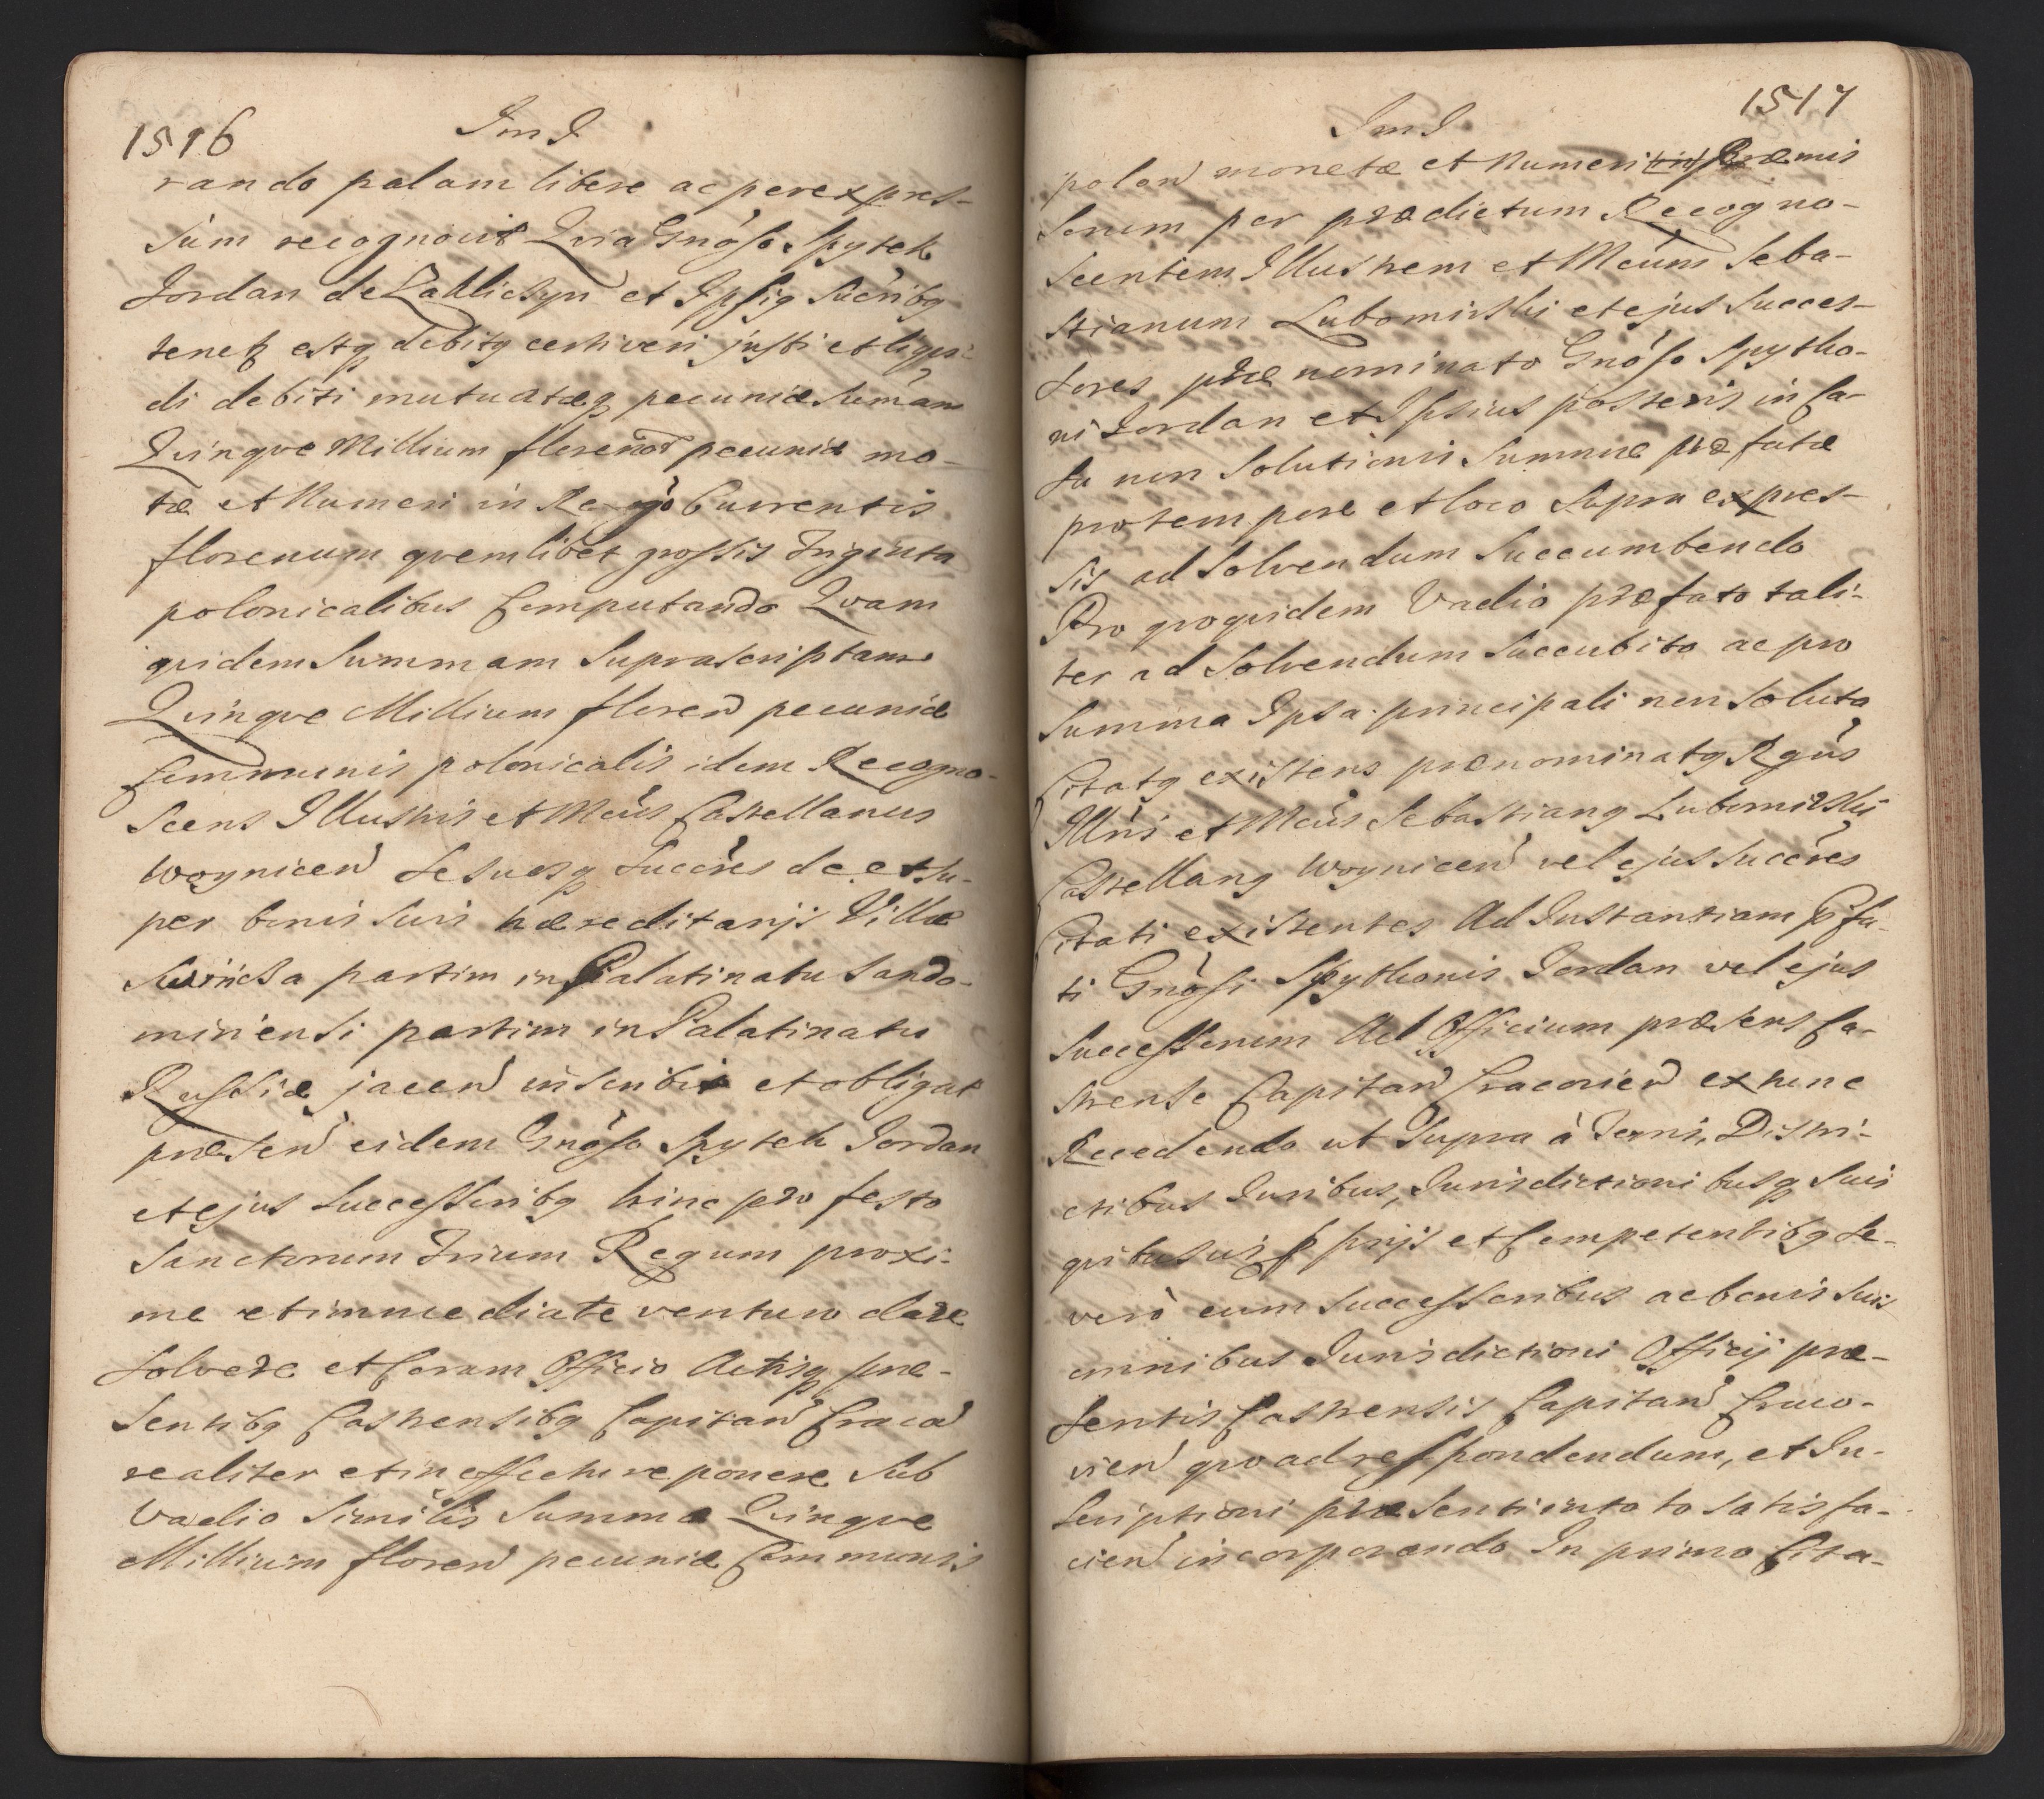 1516
ImJ
rando palam libere ac per expres-
sum recognovit Qvia Gnoso Spytek
Jordan de Zakliczyn et Ipsiq Sucribq
tenetz estq debitq certi veri justi et liqvi-
di debiti mutuatæq pecuniæ sumam
Qvinqve Millium florenor pecuniæ mo-
tæ et Numeri in Regno Currentis
florenum qvemlibet grossis Triginta
polonicalibus Computando Qvam
qvidem Summam Suprascriptam
Qvinqve Millium floren pecuniæ
Communis polonicalis idem Recogno-
scens Illustris et Mcus Castellanus
Woynicen Se suosq Succres de et su-
per bonis suis hæreditarijs Villæ
partim in Palatinatu Sando-
miriensi partim in Palatinatu
Russiæ jacen inscribit et obligat
præsen eidem Gnoso Spytek Jordan
et ejus Successoribq hinc pro festo
Sanctorum Trium Regum proxi-
me et immediate venturo dare
Solvere et Coram Officio Actisq præ-
sentibq Castrensibq Capitan Cracov
realiter et in effectu reponere Sub
Vadio Similis Summæ Qvinqve
Millium floren pecuniæ Communis
1517
ImJ
polon monetæ et Numeri Præmis
sorum per prædictum Recogno-
scentem Illustrem et Mcum Seba-
stianum Lubomirski et ejus Succes-
sores prænominato Gnoso Spytko-
ni Jordan et Ipsius posteris in Ca-
su non Solutionis Summæ præfatæ
pro tempore et loco Supra expres-
sis ad Solvendum Succumbendo
Pro qvoqvidem Vadio præfato tali-
ter ad Solvendum Succubito ac pro
Summa Ipsa principali non Soluta
Citatq existens prænominatq Rgns
Illris et Mcus Sebastianq Lubomirski
Castellanq Woynicen vel ejus Succres
Citati existentes Ad Instantiam pfa-
ti Gnosi Spytkonis Jordan vel ejus
Successorum Ad Officium præsens Ca-
strense Capitan Cracovien ex tunc
Recedendo ut Supra à Terris, Distri-
ctibus Juribus, Jurisdictionibusq Suis
prijs et Competentibq Se-
vero cum Successoribus ac bonis Suis
omnibus Jurisdictioni Officij præ-
sentis Castrensis Capitan Craco-
vien qvo ad respondendum, et In-
scriptioni præsenti in toto satisfa-
cien incorporando In primo Cita-